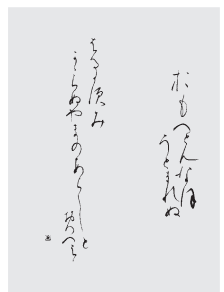 おもへともなほ
うとまれぬ
はるかすみ
かゝらぬやまのあらしと
おもへは